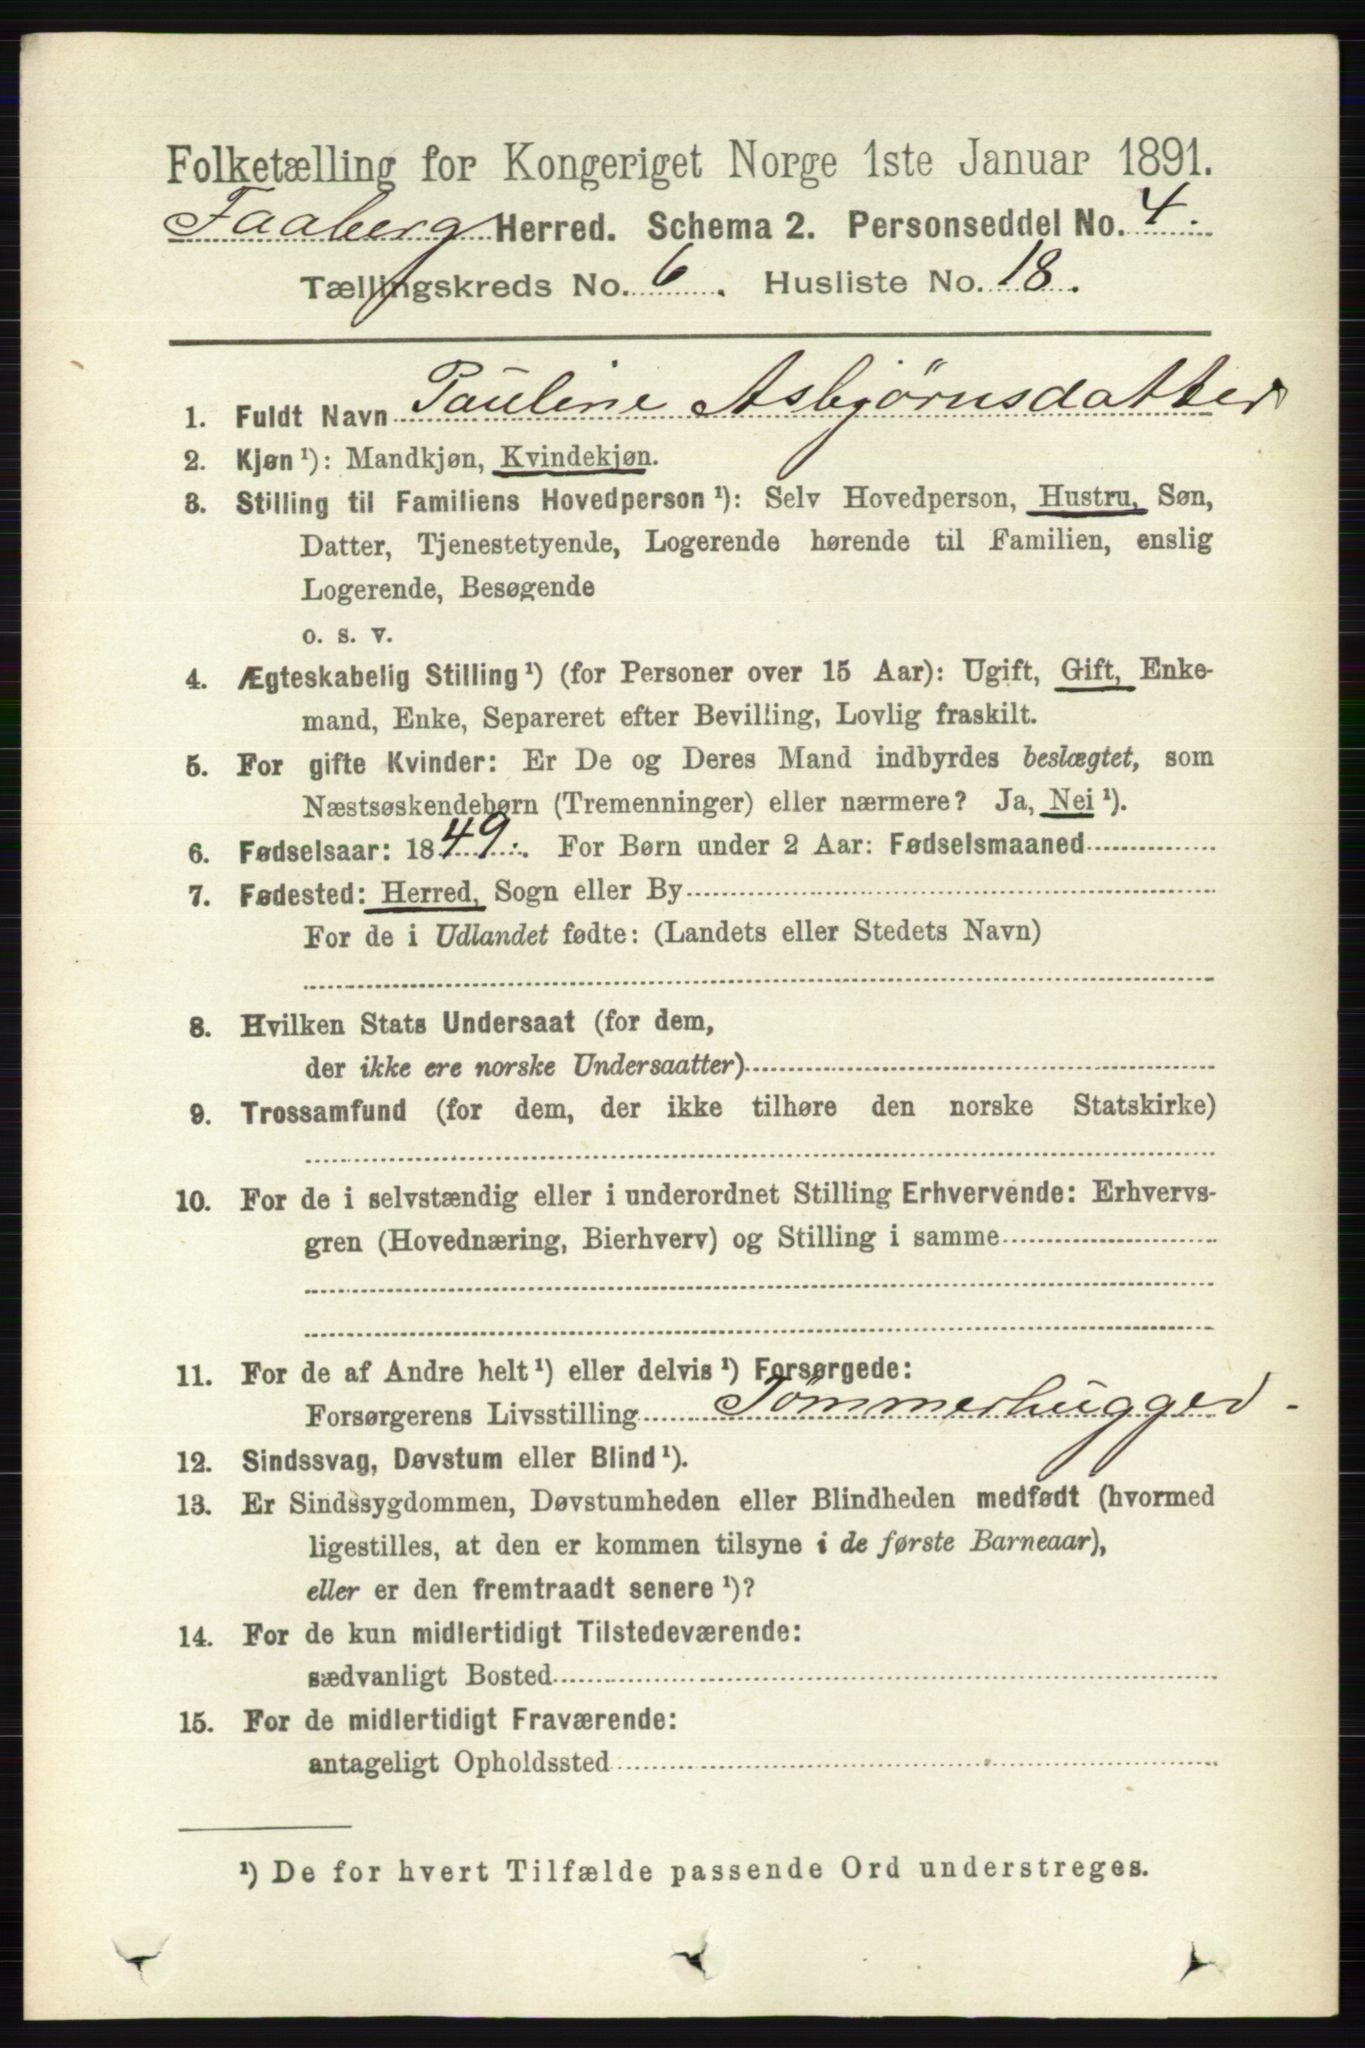 Folketælling for Kongeriget Norge 1ste Januar 1891.
Faaberg Herred. Schema 2. Personseddel No. 4.
Tællingskreds No. 6. Husliste No. 18.
1. Fuldt Navn Pauline Asbjørnsdatter
2. Kjøn ¹): Mandkjøn, Kvindekjøn.
3. Stilling til Familiens Hovedperson ¹): Selv Hovedperson, Hustru, Søn,
Datter, Tjenestetyende, Logerende hørende til Familien, enslig
Logerende, Besøgende
o. s. v.
4. Ægteskabelig Stilling ¹) (for Personer over 15 Aar): Ugift, Gift, Enke-
mand, Enke, Separeret efter Bevilling, Lovlig fraskilt.
5. For gifte Kvinder: Er De og Deres Mand indbyrdes beslægtet, som
Næstsøskendebørn (Tremenninger) eller nærmere? Ja, Nei ¹).
6. Fødselsaar: 1849. For Børn under 2 Aar: Fødselsmaaned
7. Fødested: Herred, Sogn eller By
For de i Udlandet fødte: (Landets eller Stedets Navn)
8. Hvilken Stats Undersaat (for dem,
der ikke ere norske Undersaatter)
9. Trossamfund (for dem, der ikke tilhøre den norske Statskirke)
10. For de i selvstændig eller i underordnet Stilling Erhvervende: Erhvervs-
gren (Hovednæring, Bierhverv) og Stilling i samme
11. For de af Andre helt ¹) eller delvis ¹) Forsørgede:
Forsørgerens Livsstilling Tömmerhugger.
12. Sindssvag, Døvstum eller Blind ¹).
13. Er Sindssygdommen, Døvstumheden eller Blindheden medfødt (hvormed
ligestilles, at den er kommen tilsyne i de første Barneaar),
eller er den fremtraadt senere ¹)?
14. For de kun midlertidigt Tilstedeværende:
sædvanligt Bosted
15. For de midlertidigt Fraværende:
antageligt Opholdssted
¹) De for hvert Tilfælde passende Ord understreges.